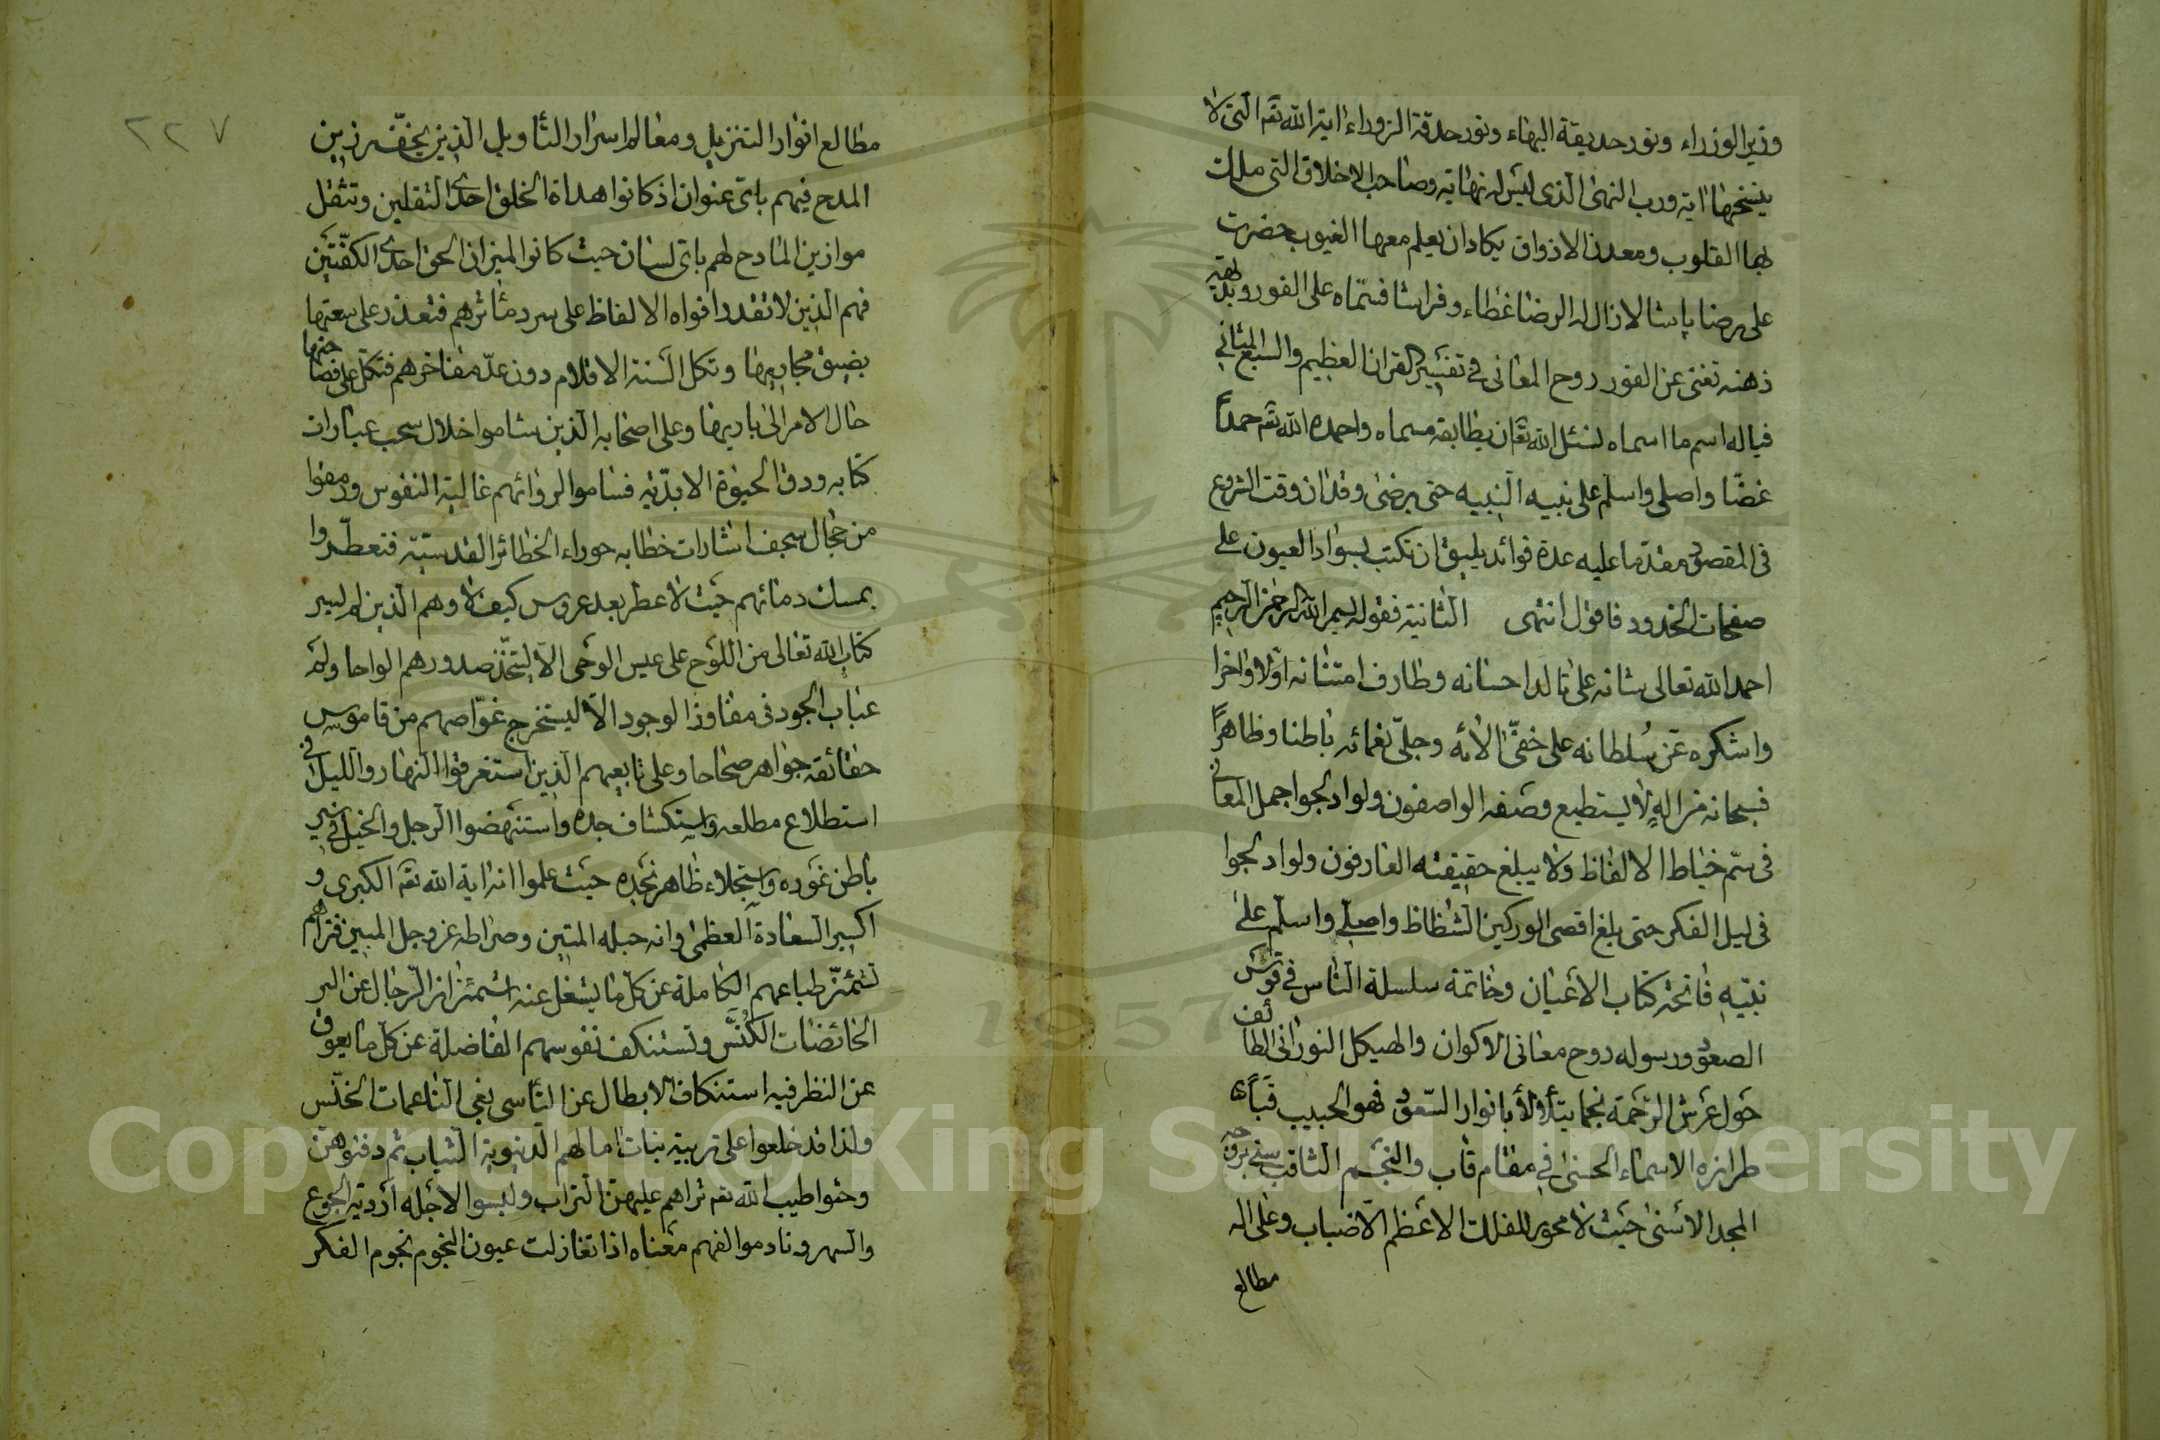 وزير الوزراء ونور حديقة البهاء ونور حدقة الزوراء اية الله تعم التي لا
ينسخها اية ورب النهى الذي ليس له نهاية وصاحب الاخلاق التي ملك
بها القلوب ومعدن الاذواق يكاد ان يعلم معها الغيوب حضرت
على رضا باشا لا زال له الرضا غطاء وفراشا فسماه على الفور وبديهة
ذهنه تغنى عن الغور روح المعاني في تفسير القران العظيم والسبع المثاني
فياله اسم ما اسماه لسئل الله تعم ان يطابقه مسماه واحمده الله تعم حمدا
غضا واصلي واسلم على نبيه النبيه حتى يرضى وقد ان وقت الشروع
في المقصود مقدما عليه عدة فوائد يليق ان تكتب بسواد العيون على
صفحات الخدود فاقول انتهى الثانية فقوله بسم الله الرحمن الرحيم
احمد الله تعالى شانه على تالد احسانه وطارف امتنانه اولا واخرا
واشكره عز سُلطانه على خفيّ الائه وجليّ نعمائه باطنا وظاهراً
فسبحانه من الهٍ لا يستطيع وصفه الواصفون ولو ادلجوا جمل المعاني
في سم خياط الالفاظ ولا يبلغ حقيقته العارفون ولو ادلجوا
في ليل الفكر حتى بلغ اقصى الوركين الشظاظ واصلي واسلم على
نبيّه فاتحة كتاب الاعيان وخاتمة سلسلة الناس في قوس
الصعود ورسوله روح معاني الاكوان والهيكل النوراني الطائف
حول عرش الرحمة نجما يتلألأ بانوار السعود فهو الحبيب
طرازه الاسماء الحسنى في مقام قاب والنجم الثاقب
المجد الاسنى حيث لا محور للفلك الاعظم الا ضباب وعلى اله
مطالع
٢٢٧
مطالع انوار التنزيل ومعالم اسرار التأويل الذين
المدح فيهم باي عنوان اذ كانوا هداة الخلق احدى الثقلين وتثقل
موازين المادح لهم باي لسان حيث كانوا لميزان الحق احدى الكفّتين
فهم الذين لا تقدر افواه الالفاظ على سرد مآثرهم فتعذر على سعتها
بضيق مجاريها وتكل السنة الاقلام دون عدّ مفاخرهم فتكل على فصاحتها
حال الامر الى باريها وعلى اصحابه الذين شاموا خلال سحب عبارات
كتابه ودق الحيوة الابديّة فساموا لروائهم غالية النفوس ورمقوا
من حجال سجف اشارات خطابه حوراء الحظائر القدسيّة فتعطّروا
بمسك دمائهم حيث لا عطر بعد عروس كيف لا وهم الذين لم يسر
كتاب الله تعالى من اللوح على عيس الوحي الا ليتخذ صدورهم الواحا ولم
عباب الجود في مفاوز الوجود الا ليستخرج غوّاصهم من قاموس
حقائقه جواهر صحاحا وعلى تابعيهم الذين استغرقوا النهار والليل في
استطلاع مطلعه واستكشاف حده واستنهضوا الرجل والخيل في
باطن غوره واستجلاء ظاهر نجده حيث علموا انه اية الله تعم الكبرى و
اكسير السعادة العظمى وانه حبله المتين وصراطه عز وجل المبين فتراهم
تشمئز طباعهم الكاملة عن كل ما يشغل عنه اشمئزاز الرجال عن البر
الخائضات الكنس وتستنكف نفوسهم الفاضلة عن كل ما يعوق
عن النظر فيه استنكاف الابطال عن التأسي بغى الناعمات الخنّس
ولذا قد خلعوا على تربية بنات امالهم الدنيوية الشباب ثم دفنوهن
وحثوا طيب الله تعم ثراهم عليهن التراب ولبسوا لاجله اردية الجوع
والسهر ونادموا لفهم معناه اذا تغازلت عيون النجوم نجوم الفكر
Copyright © King Saud University
1957